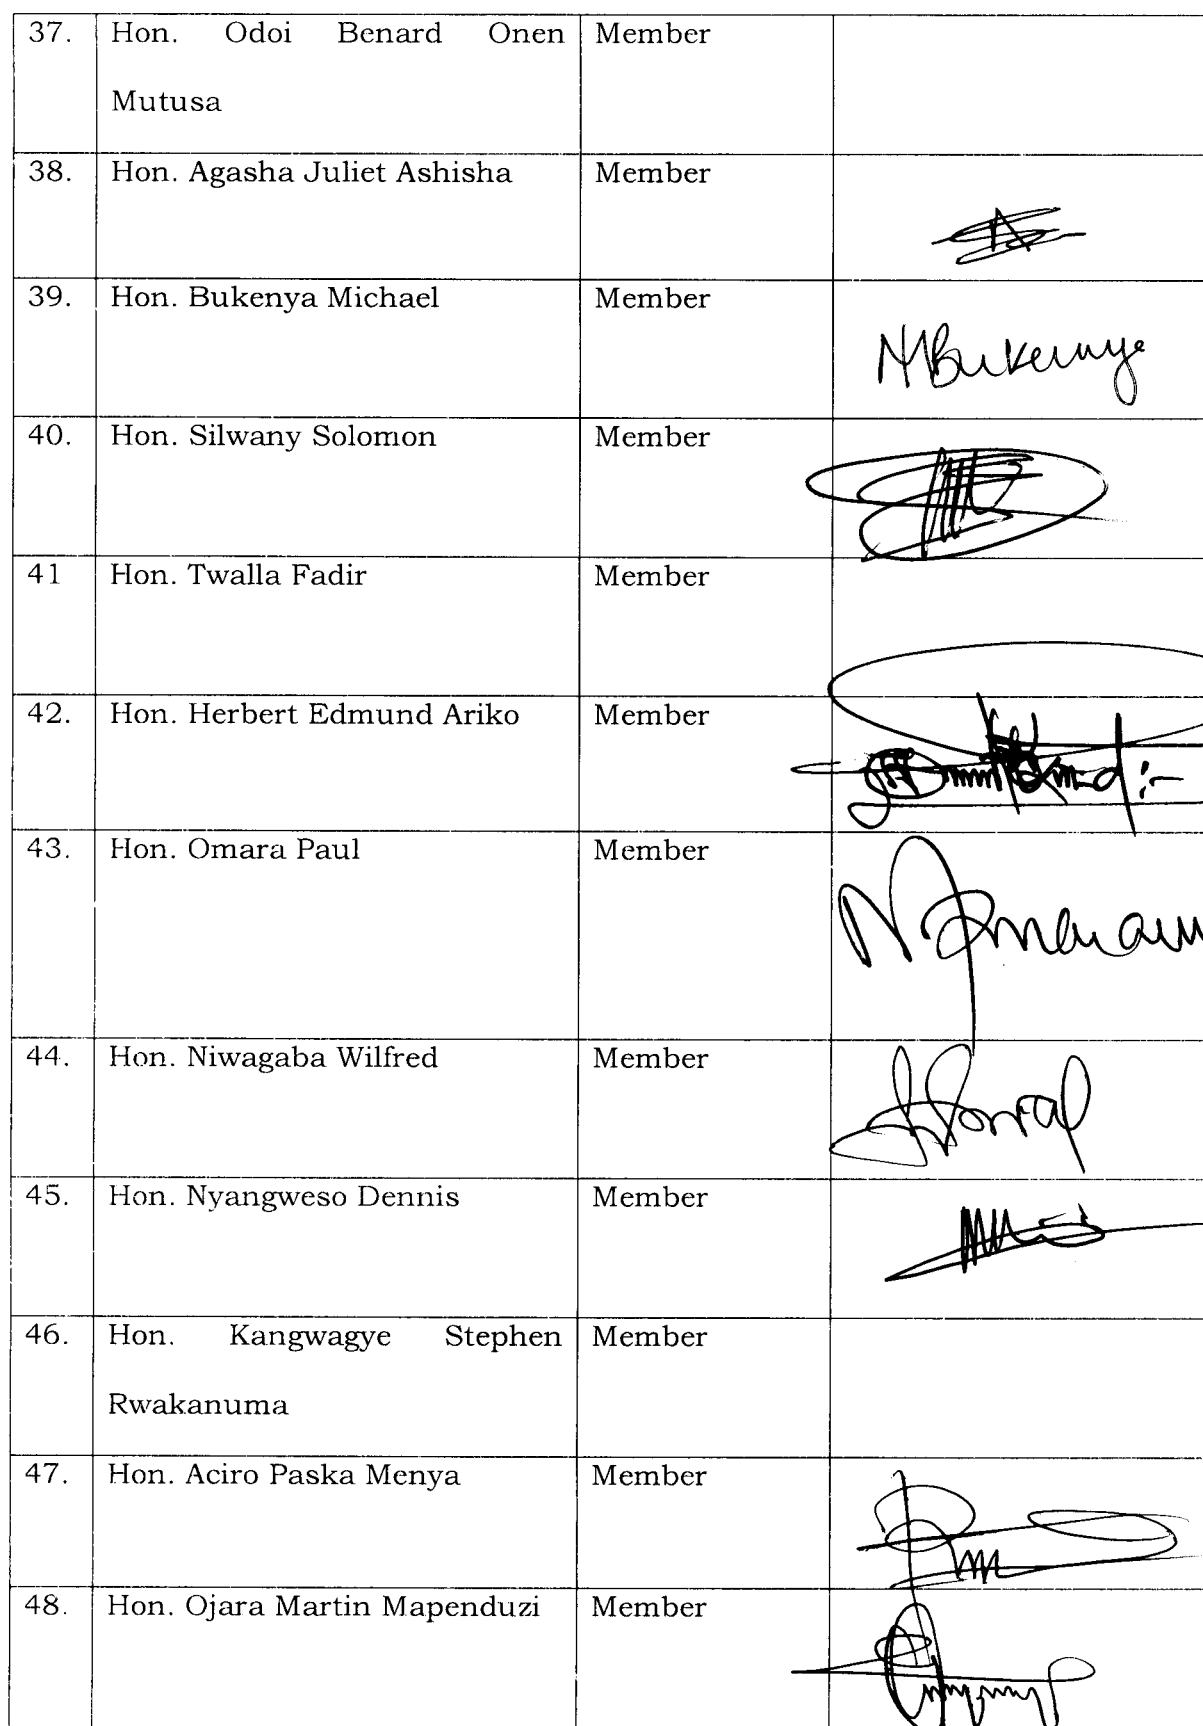 37. Hon. Odoi Benard Onen Member
Mutusa
38. Hon. Agasha Juliet Ashisha Member
39. Hon. Bukenya Michael Member
MBukenya
40. Hon. Silwany Solomon Member
41 Hon. Twalla Fadir Member
42. Hon. Herbert Edmund Ariko Member
43. Hon. Omara Paul Member
44. Hon. Niwagaba Wilfred Member
45. Hon. Nyangweso Dennis Member
46. Hon. Kangwagye Stephen Member
Rwakanuma
47. Hon. Aciro Paska Menya Member
48. Hon. Ojara Martin Mapenduzi Member